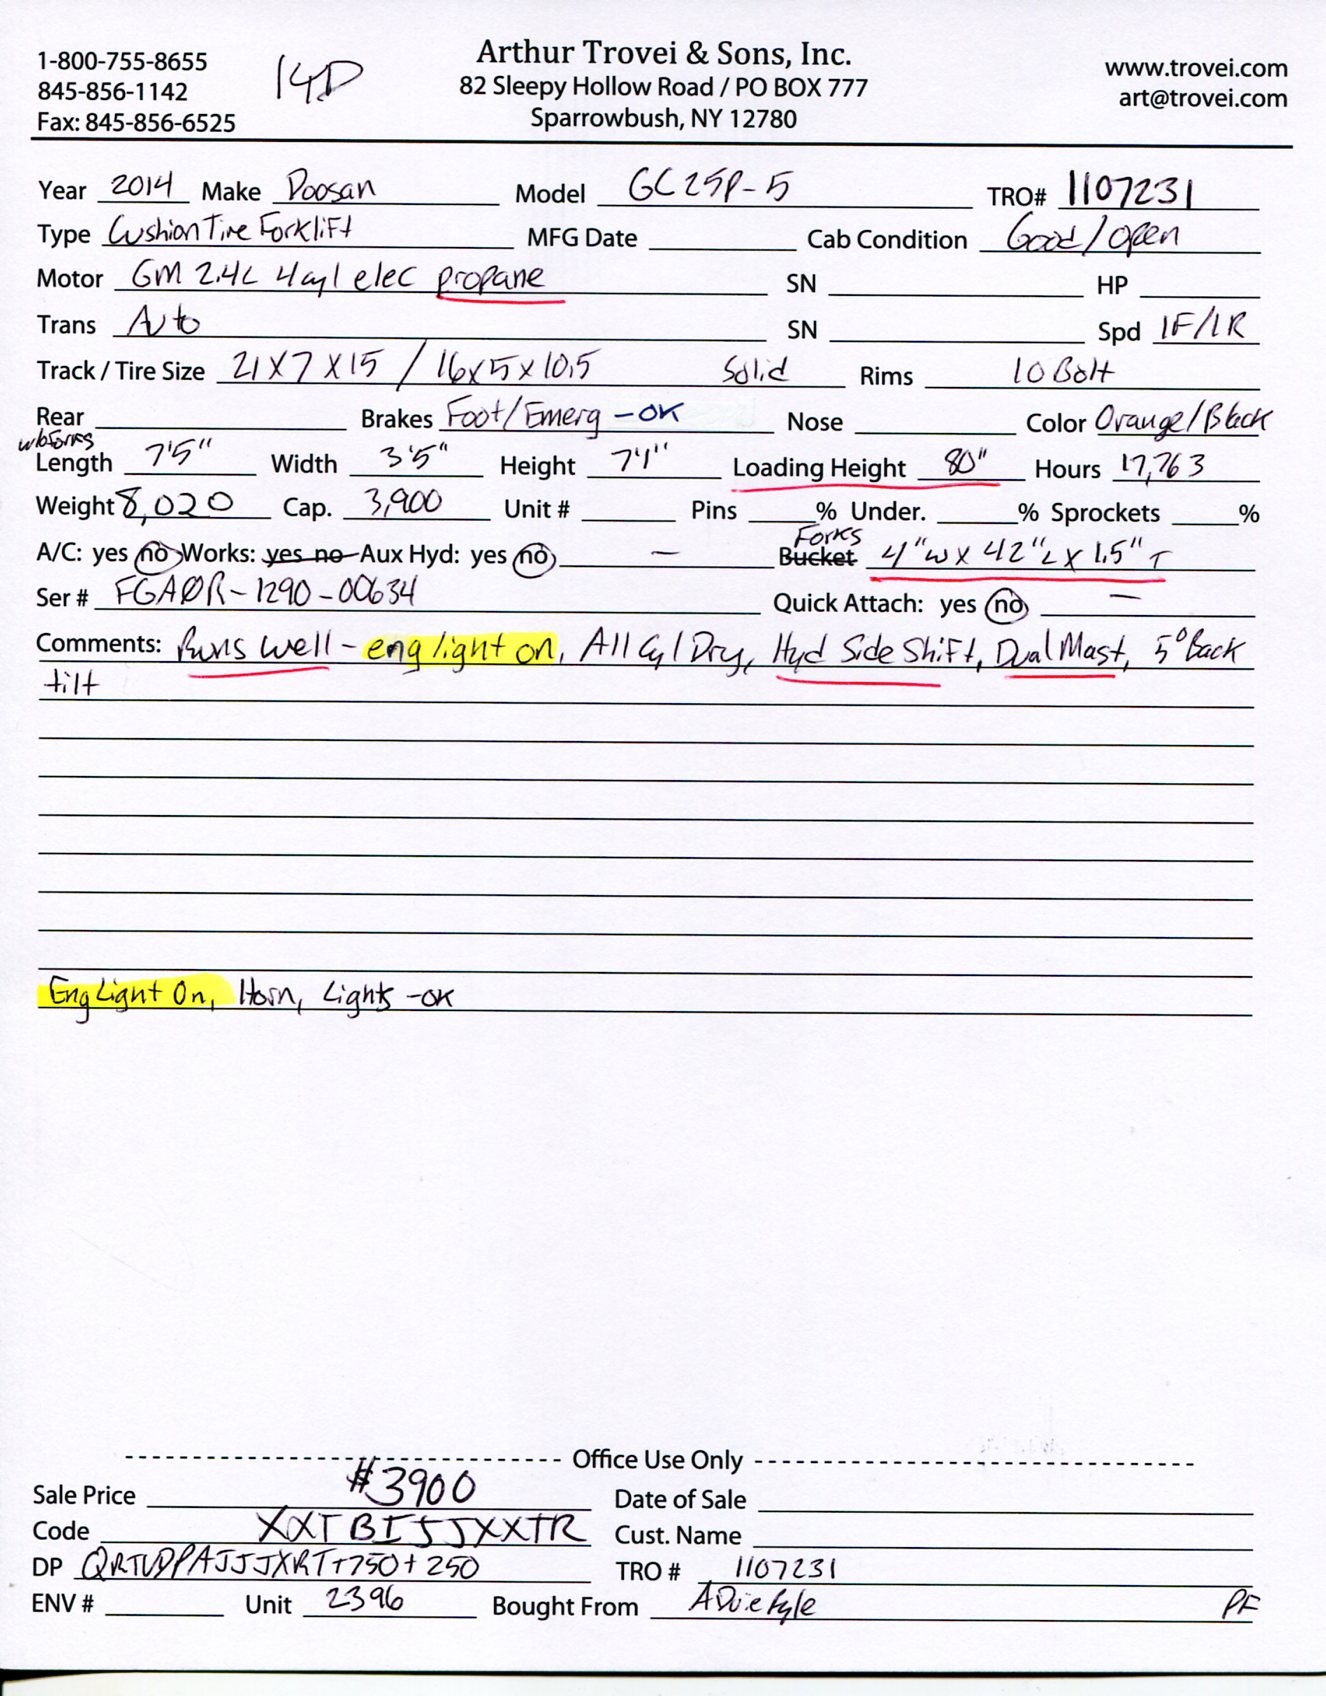 1-800-755-8655
845-856-1142
Fax: 845-856-6525
14D
Arthur Trovei & Sons, Inc.
82 Sleepy Hollow Road / PO BOX 777
Sparrowbush, NY 12780
www.trovei.com
art@trovei.com
Year 2014 Make Doosan Model GC25P-5 TRO# 1107231
Type Cushion Tire Forklift MFG Date Cab Condition Good/open
Motor GM 2.4L 4cyl elec propane SN HP
Trans Auto SN Spd 1F/1R
Track / Tire Size 21x7x15 / 16x5x10.5 Solid Rims 10 Bolt
Rear Brakes Foot/Emerg -OK Nose Color Orange/Black
w/o Forks
Length 7'5" Width 3'5" Height 7'1" Loading Height 80" Hours 17,763
Weight 8,020 Cap. 3,900 Unit # Pins % Under. % Sprockets %
Forks
A/C: yes no Works: yes no Aux Hyd: yes no — Bucket 4"W x 42"L x 1.5"T
Ser # FGA0R-1290-00634 Quick Attach: yes no —
Comments: Runs well - eng light on, All Cyl Dry, Hyd Side Shift, Dual Mast, 5° Back
tilt
Eng Light On, Horn, Lights -OK
Office Use Only
Sale Price #3900 Date of Sale
Code Cust. Name
DP +750+250 TRO # 1107231
ENV # Unit 2396 Bought From PF